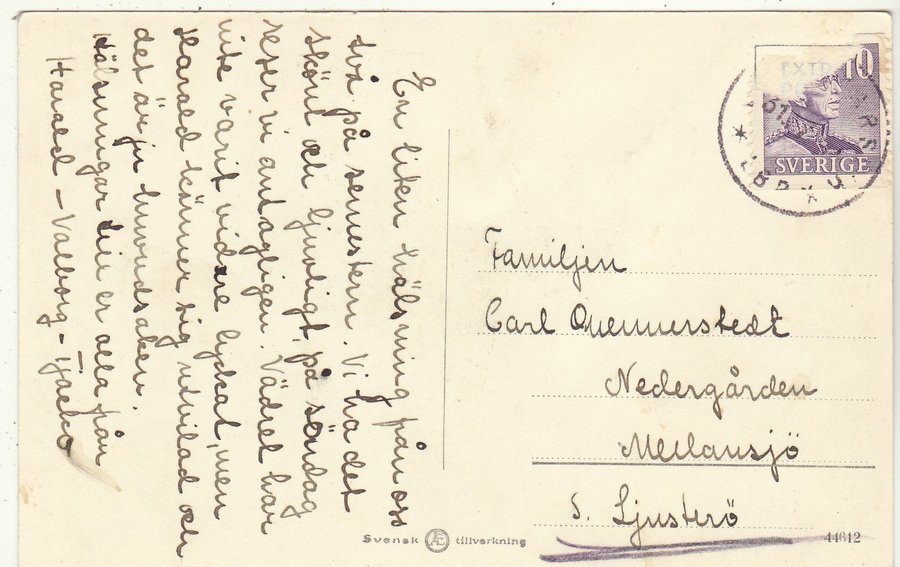 En liten hälsning från oss
två på semestern. Vi ha det
skönt och ljuvligt, på söndag
reser vi antagligen. Vädret har
inte varit vidare lyckat, men
Harald känner sig utvilad och
det är ju huvudsaken.
Hälsningar till er alla från
Harald – Valborg –
10
EXTR
SVERIGE
Familjen
Carl Quennerstedt
Nedergården
Mellansjö
S. Ljusterö
Svensk Æ tillverkning
44612